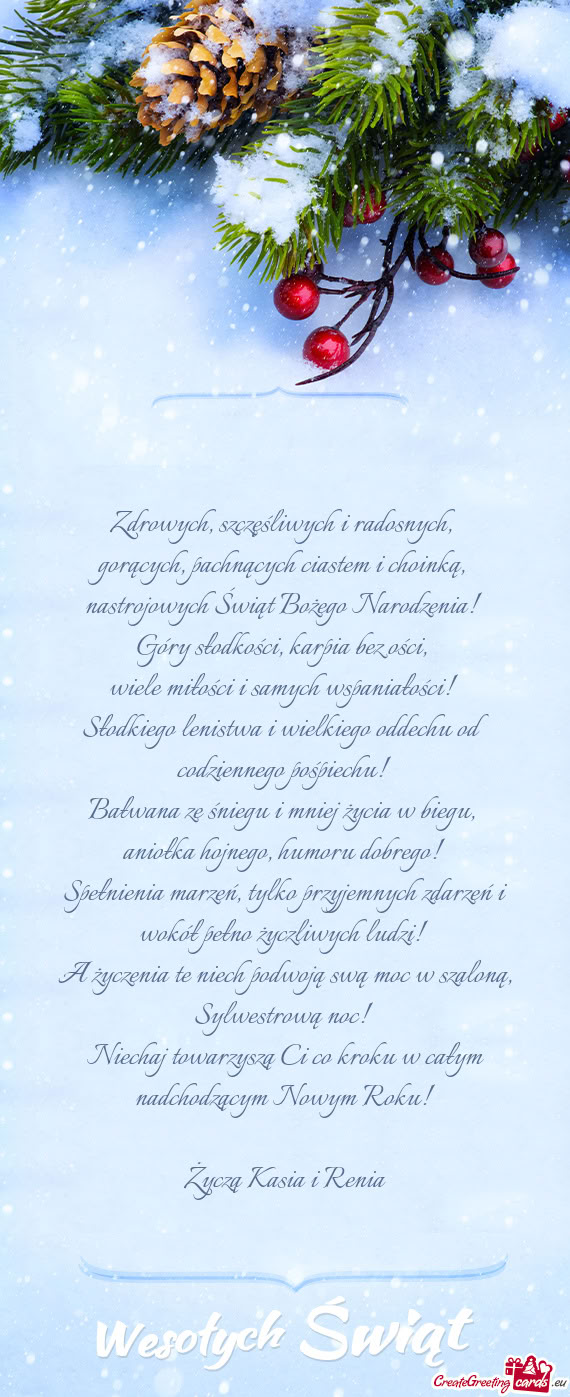 Zdrowych, szczęśliwych i radosnych,
gorących, pachnących ciastem i choinką,
nastrojowych Świąt Bożego Narodzenia!
Góry słodkości, karpia bez ości,
wiele miłości i samych wspaniałości!
Słodkiego lenistwa i wielkiego oddechu od
codziennego pośpiechu!
Bałwana ze śniegu i mniej życia w biegu,
aniołka hojnego, humoru dobrego!
Spełnienia marzeń, tylko przyjemnych zdarzeń i
wokół pełno życzliwych ludzi!
A życzenia te niech podwoją swą moc w szaloną,
Sylwestrową noc!
Niechaj towarzyszą Ci co kroku w całym
nadchodzącym Nowym Roku!
Życzą Kasia i Renia
Wesołych Świąt
CreateGreeting cards .eu